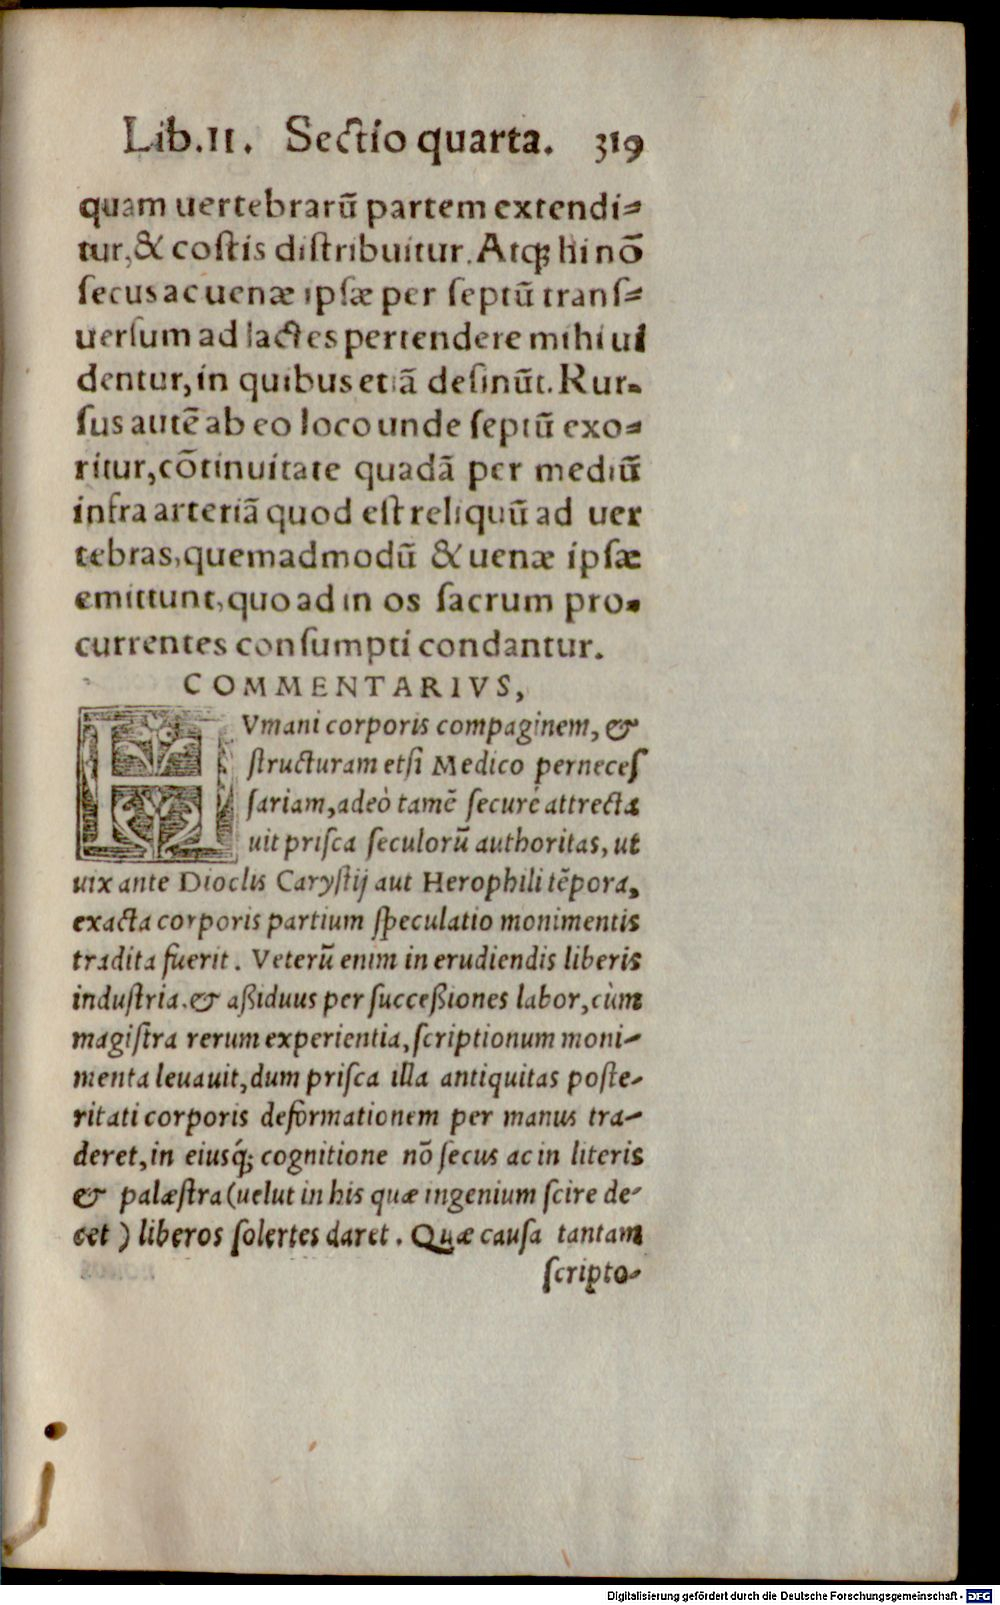 Lib.II. Sectio quarta. 319
quam uertebrarũ partem extendi⸗
tur, & coſtis diſtribuitur. Atq; hi nõ
ſecus ac uenæ ipſæ per ſeptũ tranſ⸗
uerſum ad lactes pertendere mihi ui
dentur, in quibus etiã deſinũt. Rur⸗
ſus autẽ ab eo loco unde ſeptũ exo⸗
ritur, cõtinuitate quadã per mediũ
infra arteriã quod eſt reliquũ ad uer
tebras, quemadmodũ & uenæ ipſæ
emittunt, quo ad in os ſacrum pro⸗
currentes conſumpti condantur.
COMMENTARIVS,
HVmani corporis compaginem, &
ſtructuram etſi Medico perneceſ
ſariam, adeò tamẽ ſecurè attrecta
uit priſca ſeculorũ authoritas, ut
uix ante Dioclis Caryſtij aut Herophili tẽpora,
exacta corporis partium ſpeculatio monimentis
tradita fuerit. Veterũ enim in erudiendis liberis
induſtria, & aßiduus per ſucceßiones labor, cùm
magiſtra rerum experientia, ſcriptionum moni-
menta leuauit, dum priſca illa antiquitas poſte-
ritati corporis deformationem per manus tra-
deret, in eiusq́; cognitione nõ ſecus ac in literis
& palæſtra (uelut in his quæ ingenium ſcire de-
cet) liberos ſolertes daret. Quæ cauſa tantam
ſcripto-
Digitalisierung gefördert durch die Deutsche Forschungsgemeinschaft - DFG